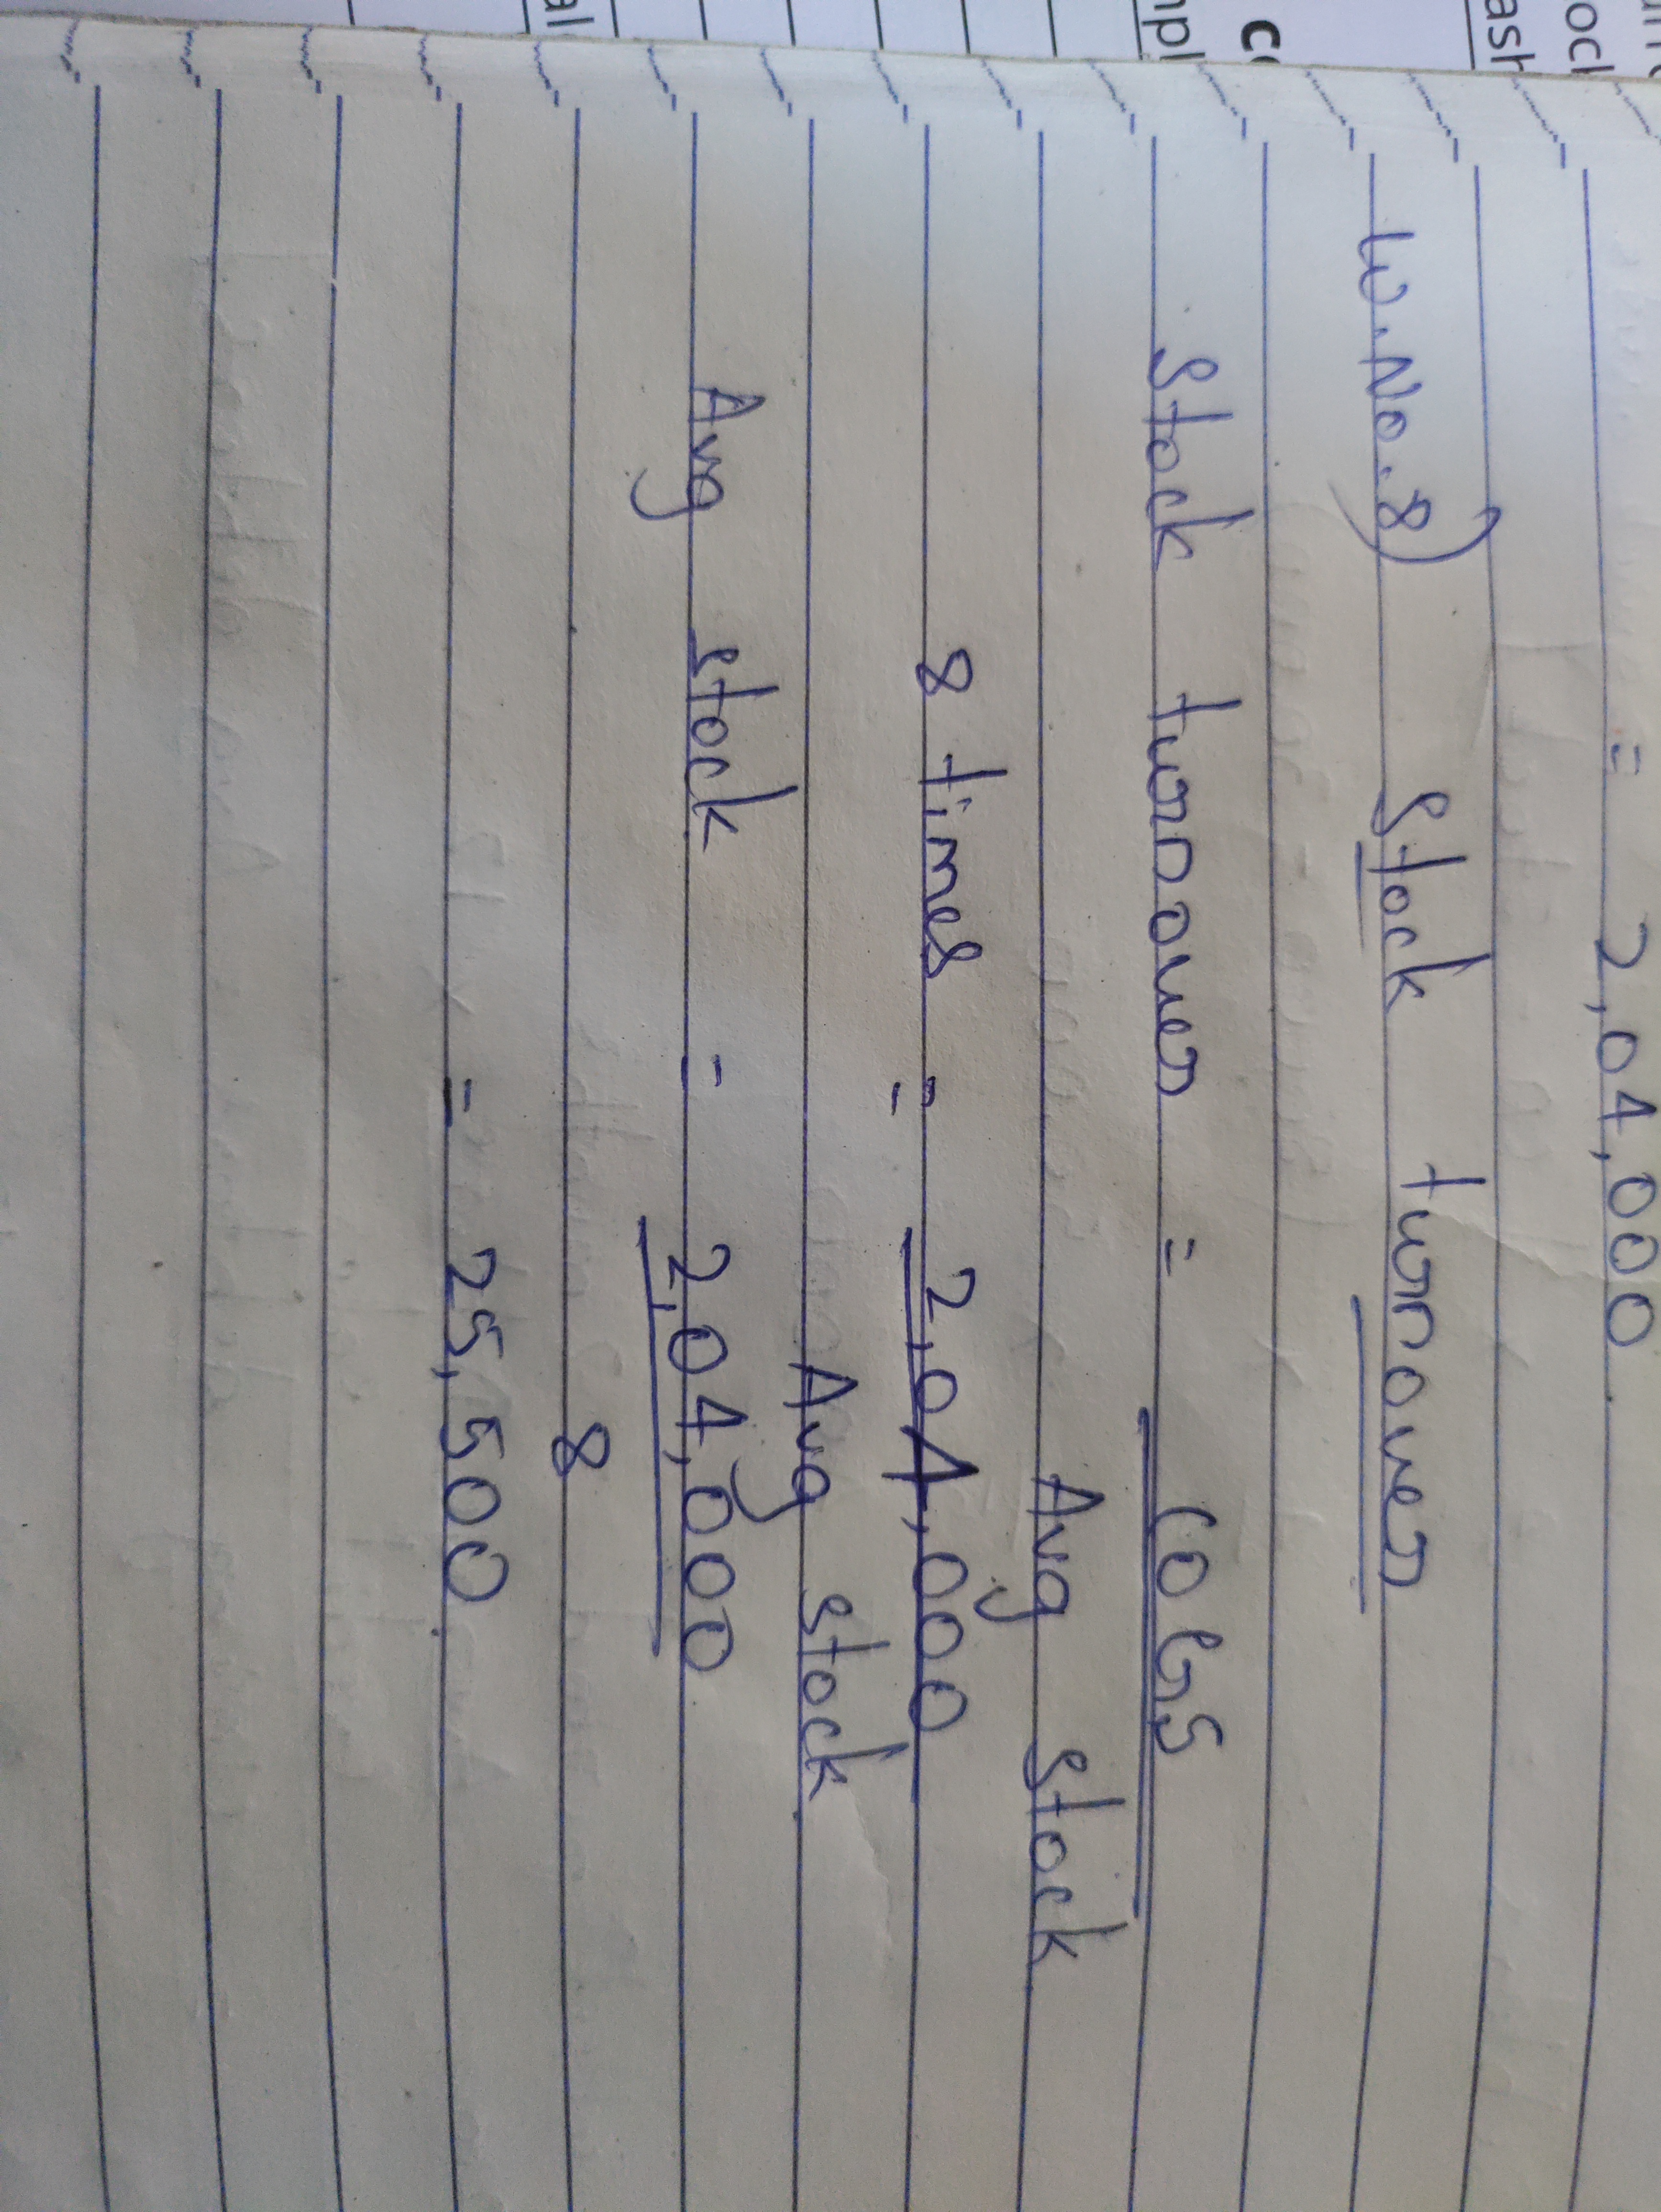 = 2,04,000.
W.No.8) Stock turnover
Stock turnover = COGS
Avg stock
8 times = 2,04,000
Avg stock
Avg stock = 2,04,000
8
= 25,500